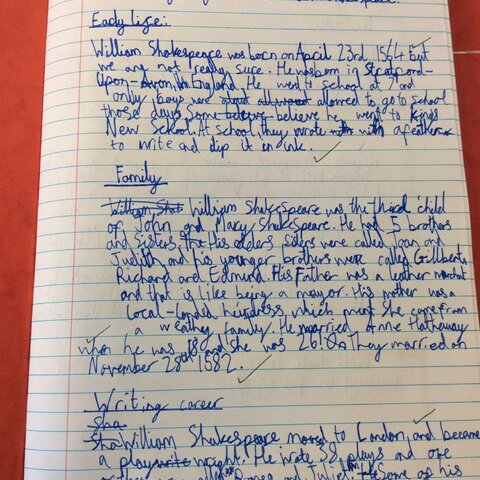 Early life:
William Shakespeare was born on April 23rd, 1564 but
we are not really sure. He was born in Stratford-
Upon-Avon, in England. He went to school at 7 and
only boys were allowed to go to school
those days. Some believe he went to kings
New School. At school, they wrote with a feather
to write and dip it in ink.
Family
William Sha William Shakespeare was the third child
of John and Mary Shakespeare. He had 5 brothers
and sisters, His olders sisters were called Joan and
Judith, and his younger brothers were called Gilbert,
Richard and Edmund. His Father was a leather merchat
and that is like being a mayor. His mother was a
local-landed heirdress, which ment she came from
a weathey family. He married Anne Hathaway
when he was 18 and she was 26. They married on
November 28th 1582.
Writing career
Sha
Sha William Shakespeare moved to London, and became
a playwrite wright. He wrote 38 plays and one
Romeo and Juliet. Some of his